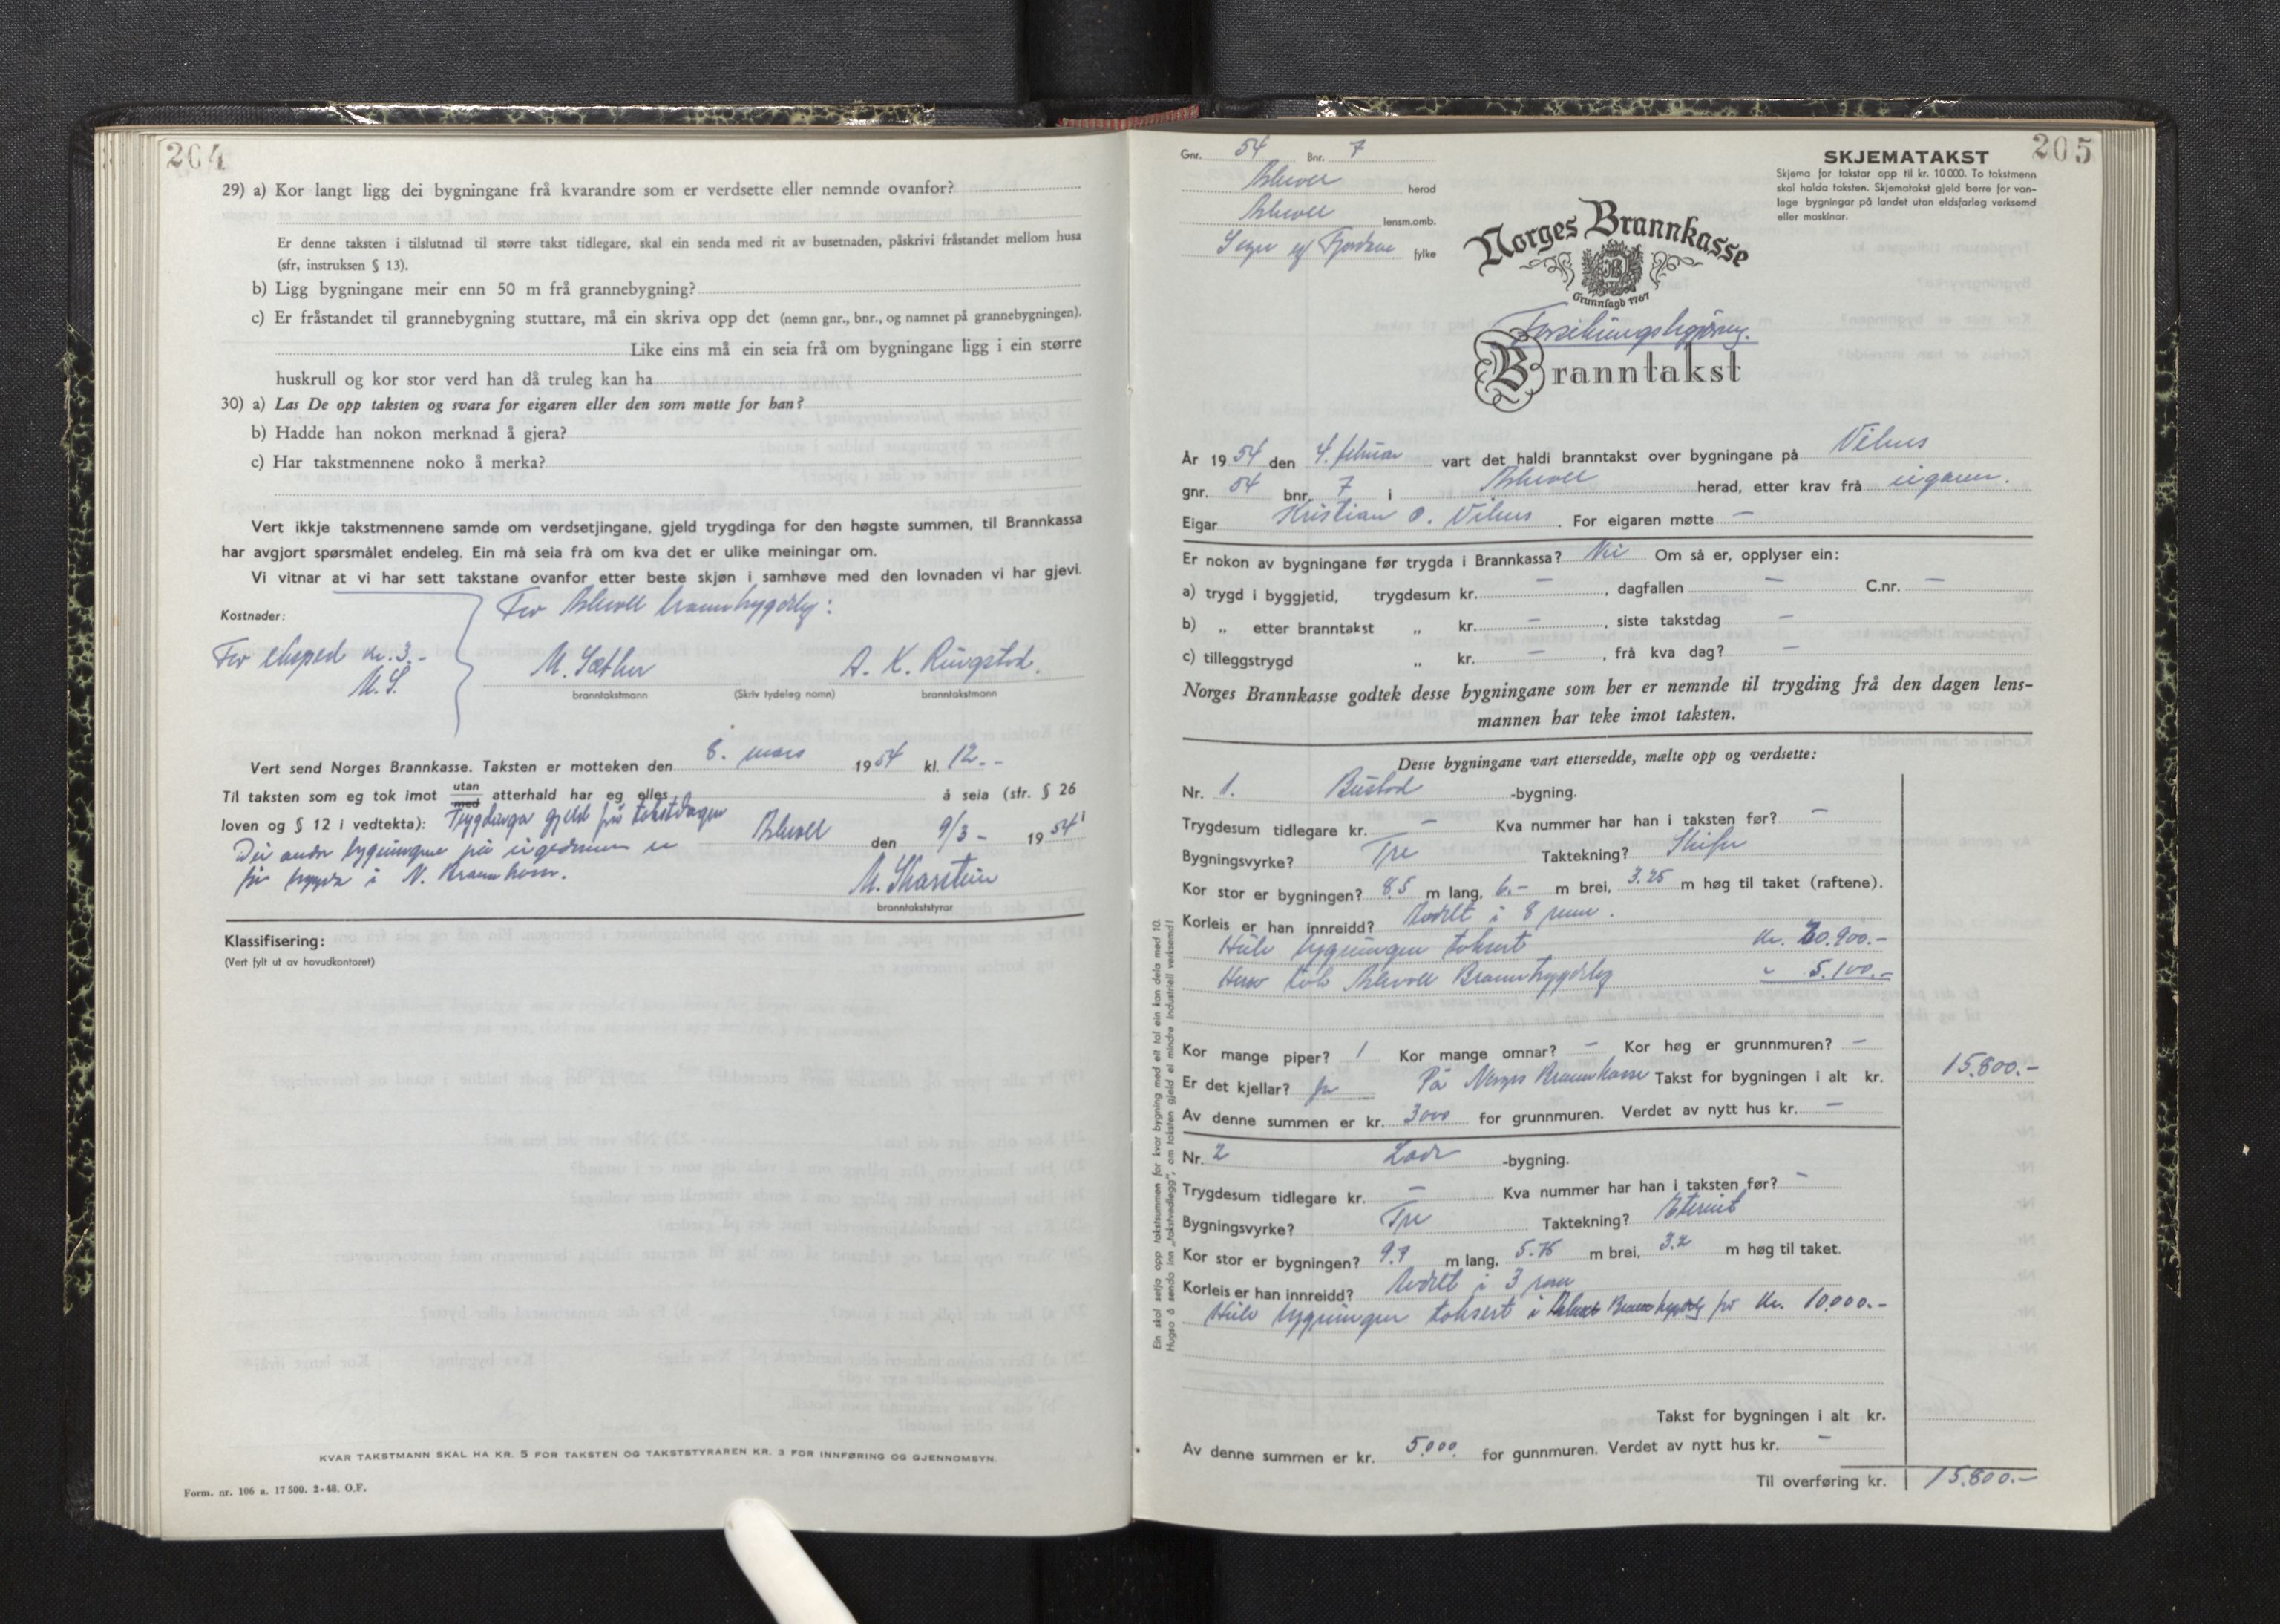 204
29) a) Kor langt ligg dei bygningane frå kvarandre som er verdsette eller nemnde ovanfor?
Er denne taksten i tilslutnad til større takst tidlegare, skal ein senda med rit av busetnaden, påskrivi fråstandet mellom husa
(sfr, instruksen § 13).
b) Ligg bygningane meir enn 50 m frå grannebygning?
c) Er fråstandet til grannebygning stuttare, må ein skriva opp det (nemn gnr., bnr., og namnet på grannebygningen).
Like eins må ein seia frå om bygningane ligg i ein større
huskrull og kor stor verd han då truleg kan ha
30) a) Las De opp taksten og svara for eigaren eller den som møtte for han?
b) Hadde han nokon merknad å gjera?
c) Har takstmennene noko å merka?
Vert ikkje takstmennene samde om verdsetjingane, gjeld trygdinga for den høgste summen, til Brannkassa
har avgjort spørsmålet endeleg. Ein må seia frå om kva det er ulike meiningar om.
Vi vitnar at vi har sett takstane ovanfor etter beste skjøn i samhøve med den lovnaden vi har gjevi.
Kostnader:
For Askvoll branntrygdelag:
For eksped kr. 3.-
M. S.
M. Sæther A. K. Ringstad.
branntakstmann (Skriv tydeleg namn) branntakstmann
Vert send Norges Brannkasse. Taksten er motteken den 8. mars 1954 kl. 12.-
Til taksten som eg tok imot utan med atterhald har eg elles å seia (sfr. § 26
loven og § 12 i vedtekta): Trygdinga gjeld frå takstdagen
Askvoll den 9/3 - 1954
Dei andre bygningane på eigedomen er
før trygda i N. Brannkasse.
M. Skarstein
branntakststyrar
Klassifisering:
(Vert fylt ut av hovudkontoret)
KVAR TAKSTMANN SKAL HA KR. 5 FOR TAKSTEN OG TAKSTSTYRAREN KR. 3 FOR INNFØRING OG GJENNOMSYN.
Form. nr. 106 a. 17 500. 2-48. O.F.
205
Gnr. 54 Bnr. 7
Askvoll herad
Askvoll lensm.omb.
Sogn og Fjordane fylke
SKJEMATAKST
Skjema for takstar opp til kr. 10 000. To takstmenn
skal halda taksten. Skjematakst gjeld berre for van-
lege bygningar på landet utan eldsfarleg verksemd
eller maskinar.
Norges Brannkasse
Grunnlagd 1767
Branntakst
År 1954 den 4. februar vart det haldi branntakst over bygningane på Vilnes
gnr. 54 bnr. 7 i Askvoll herad, etter krav frå eigaren.
Eigar Kristian O. Vilnes. For eigaren møtte -
Er nokon av bygningane før trygda i Brannkassa? Nei Om så er, opplyser ein:
a) trygd i byggjetid, trygdesum kr. -, dagfallen - C.nr. -
b) „ etter branntakst „ kr. -, siste takstdag -
c) tilleggstrygd „ kr. -, frå kva dag? -
Norges Brannkasse godtek desse bygningane som her er nemnde til trygding frå den dagen lens-
mannen har teke imot taksten.
Desse bygningane vart ettersedde, mælte opp og verdsette:
Nr. 1. Bustad -bygning.
Trygdesum tidlegare kr. - Kva nummer har han i taksten før? -
Bygningsvyrke? Tre Taktekning? Skifer
Kor stor er bygningen? 8,5 m lang, 6.- m brei, 3.25 m høg til taket (raftene).
Korleis er han innreidd? Avdelt i 8 rum.
Heile bygningen taksert kr. 20.900.-
Herav tek Askvoll Branntrygdelag " 5.100.-
Kor mange piper? 1 Kor mange omnar? - Kor høg er grunnmuren? -
Er det kjellar? ja På Norges Brannkasse Takst for bygningen i alt kr. 15.800.-
Av denne summen er kr. 3000 for grunnmuren. Verdet av nytt hus kr. -
Nr. 2 Løde -bygning.
Trygdesum tidlegare kr. - Kva nummer har han i taksten før? -
Bygningsvyrke? Tre Taktekning? Eternit
Kor stor er bygningen? 9.9 m lang, 5.75 m brei, 3.2 m høg til taket.
Korleis er han innreidd? Avdelt i 3 rum
Heile bygningen taksert i Askvoll Branntrygdelag for kr. 10.000.-
Takst for bygningen i alt kr.
Av denne summen er kr. 5.000. for gunnmuren. Verdet av nytt hus kr. -
Til overføring kr. 15.800.-
Ein skal setja opp takstsummen for kvar bygning med eit tal ein kan dela med 10.
Hugsa å senda inn „takstvedlegg", om taksten gjeld ei mindre industriell verksemd!